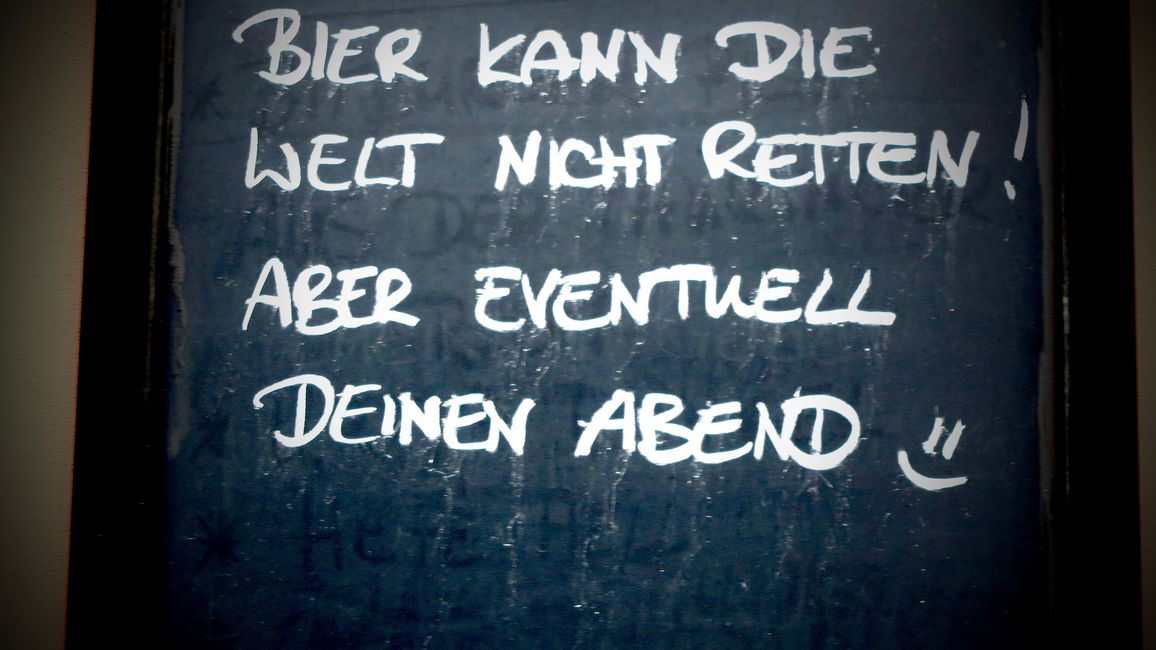 BIER KANN DIE
WELT NICHT RETTEN!
ABER EVENTUELL
DEINEN ABEND